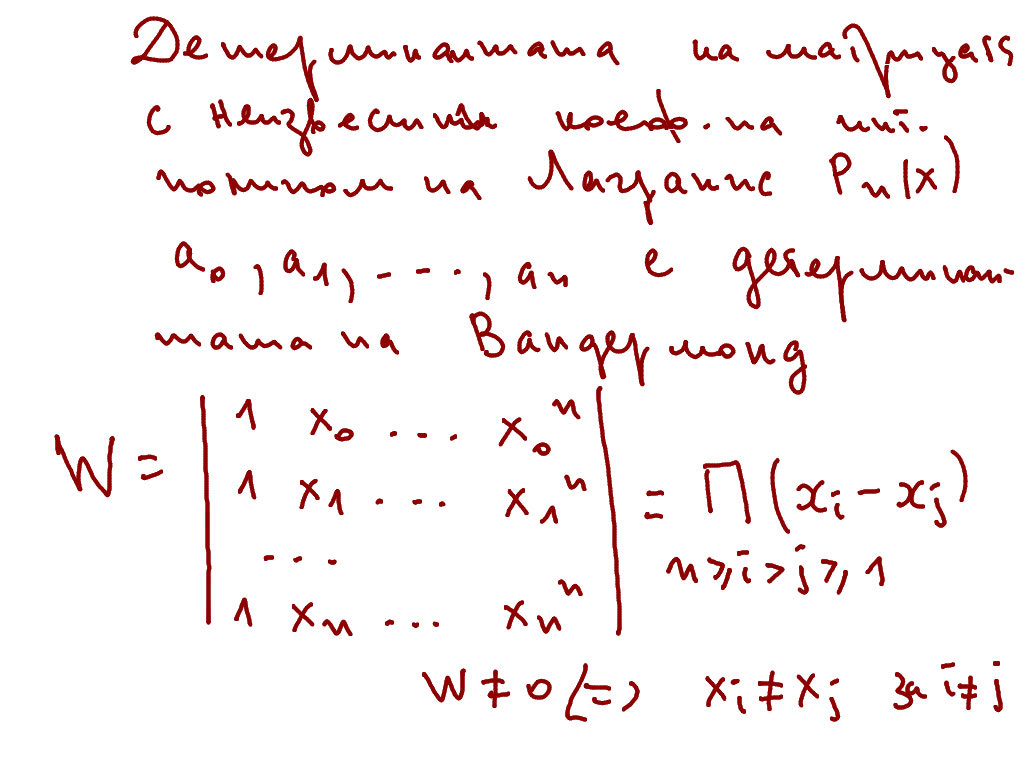 Детерминантата на матрицата
с неизвестни коеф. на ин-
полином на Лагранж Pₙ(x)
a₀, a₁, ..., aₙ е детерминан-
тата на Вандермонд
W = | 1 x₀ ... x₀ⁿ |
| 1 x₁ ... x₁ⁿ | = ∏ (xᵢ - xⱼ)
... n ≥ i > j ≥ 1
| 1 xₙ ... xₙⁿ |
W ≠ 0 <=> xᵢ ≠ xⱼ за i ≠ j